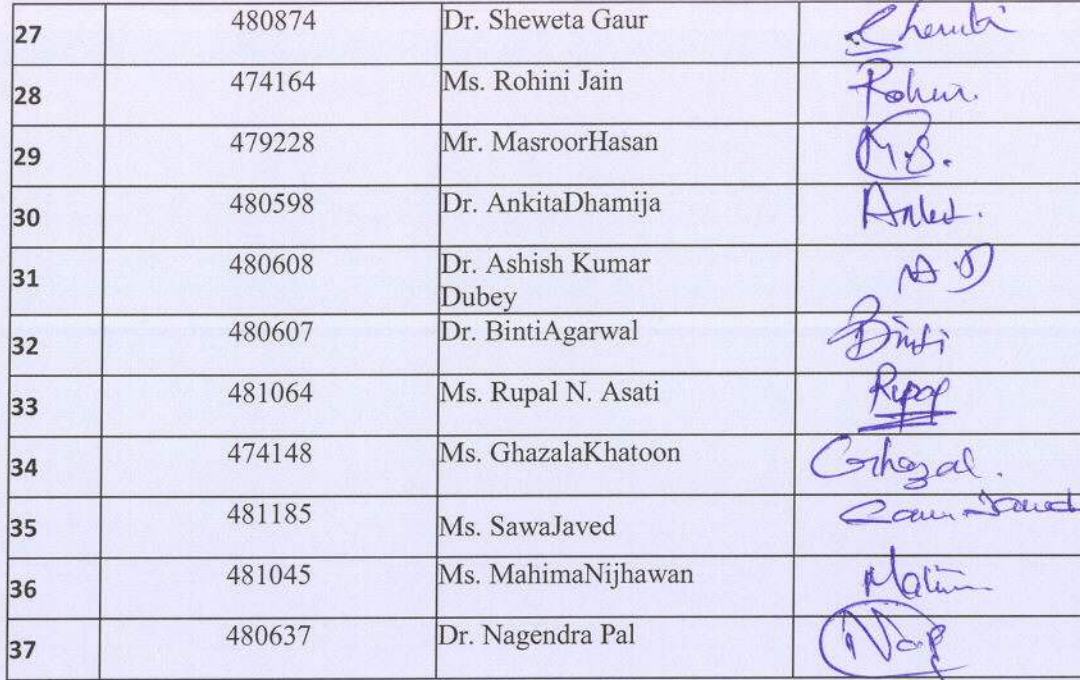 27 480874 Dr. Sheweta Gaur
28 474164 Ms. Rohini Jain Rohini.
29 479228 Mr. MasroorHasan
30 480598 Dr. AnkitaDhamija
31 480608 Dr. Ashish Kumar
Dubey
32 480607 Dr. BintiAgarwal Binti
33 481064 Ms. Rupal N. Asati
34 474148 Ms. GhazalaKhatoon Ghazal.
35 481185 Ms. SawaJaved
36 481045 Ms. MahimaNijhawan
37 480637 Dr. Nagendra Pal